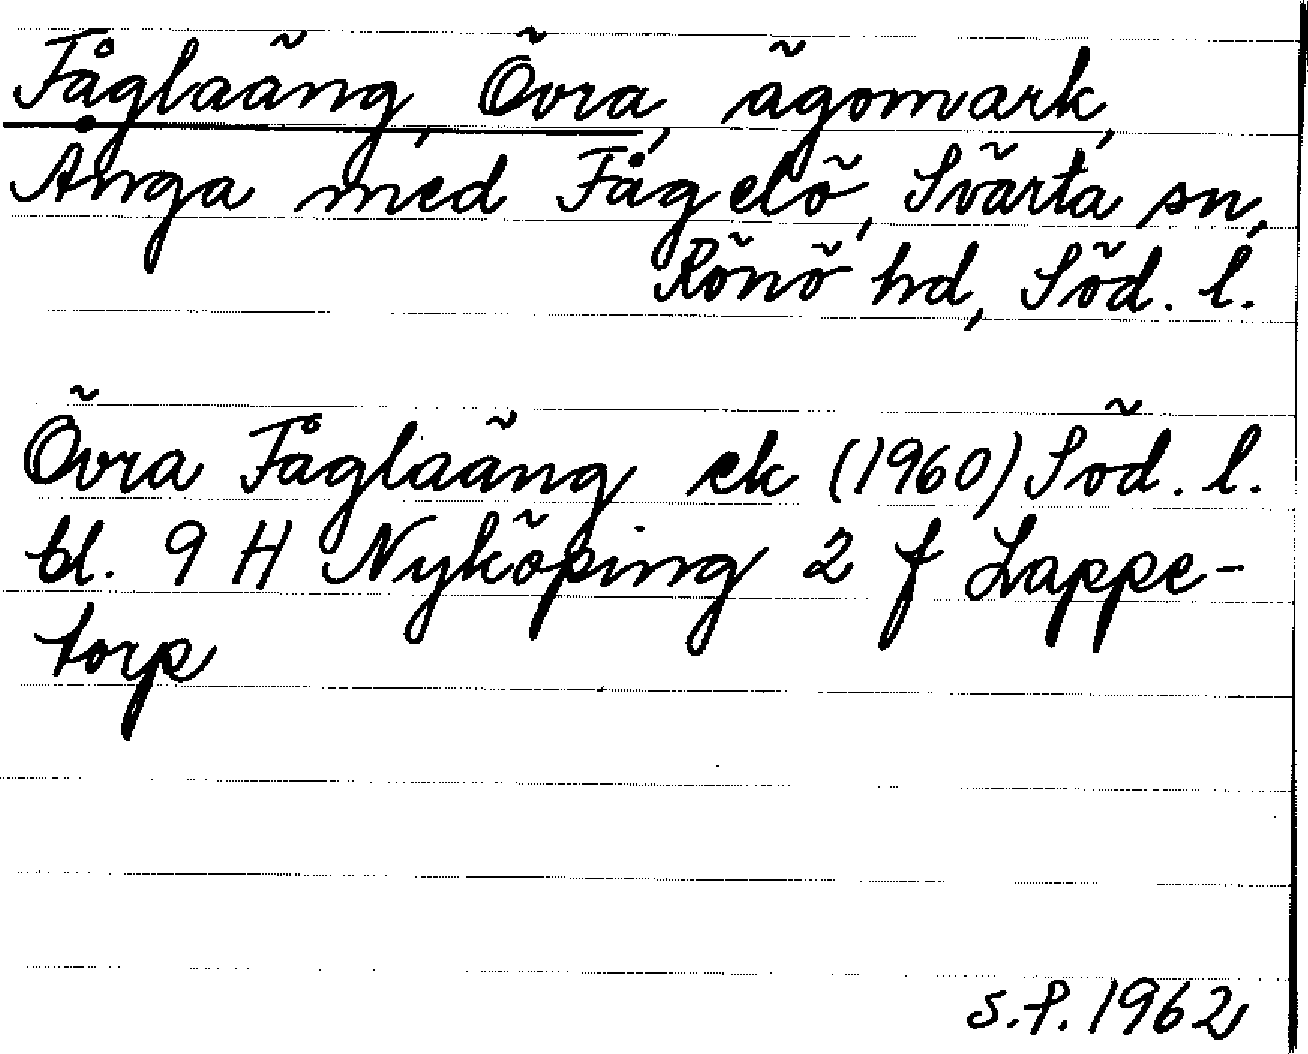 Fåglaäng, Övra, ägomark,
Ånga med Fågelö, Svärta sn,
Rönö hd, Söd. l.
Övra Fåglaäng ek (1960) Söd. l.
bl. 9 H Nyköping 2 f Lappe-
torp
S.P. 1962